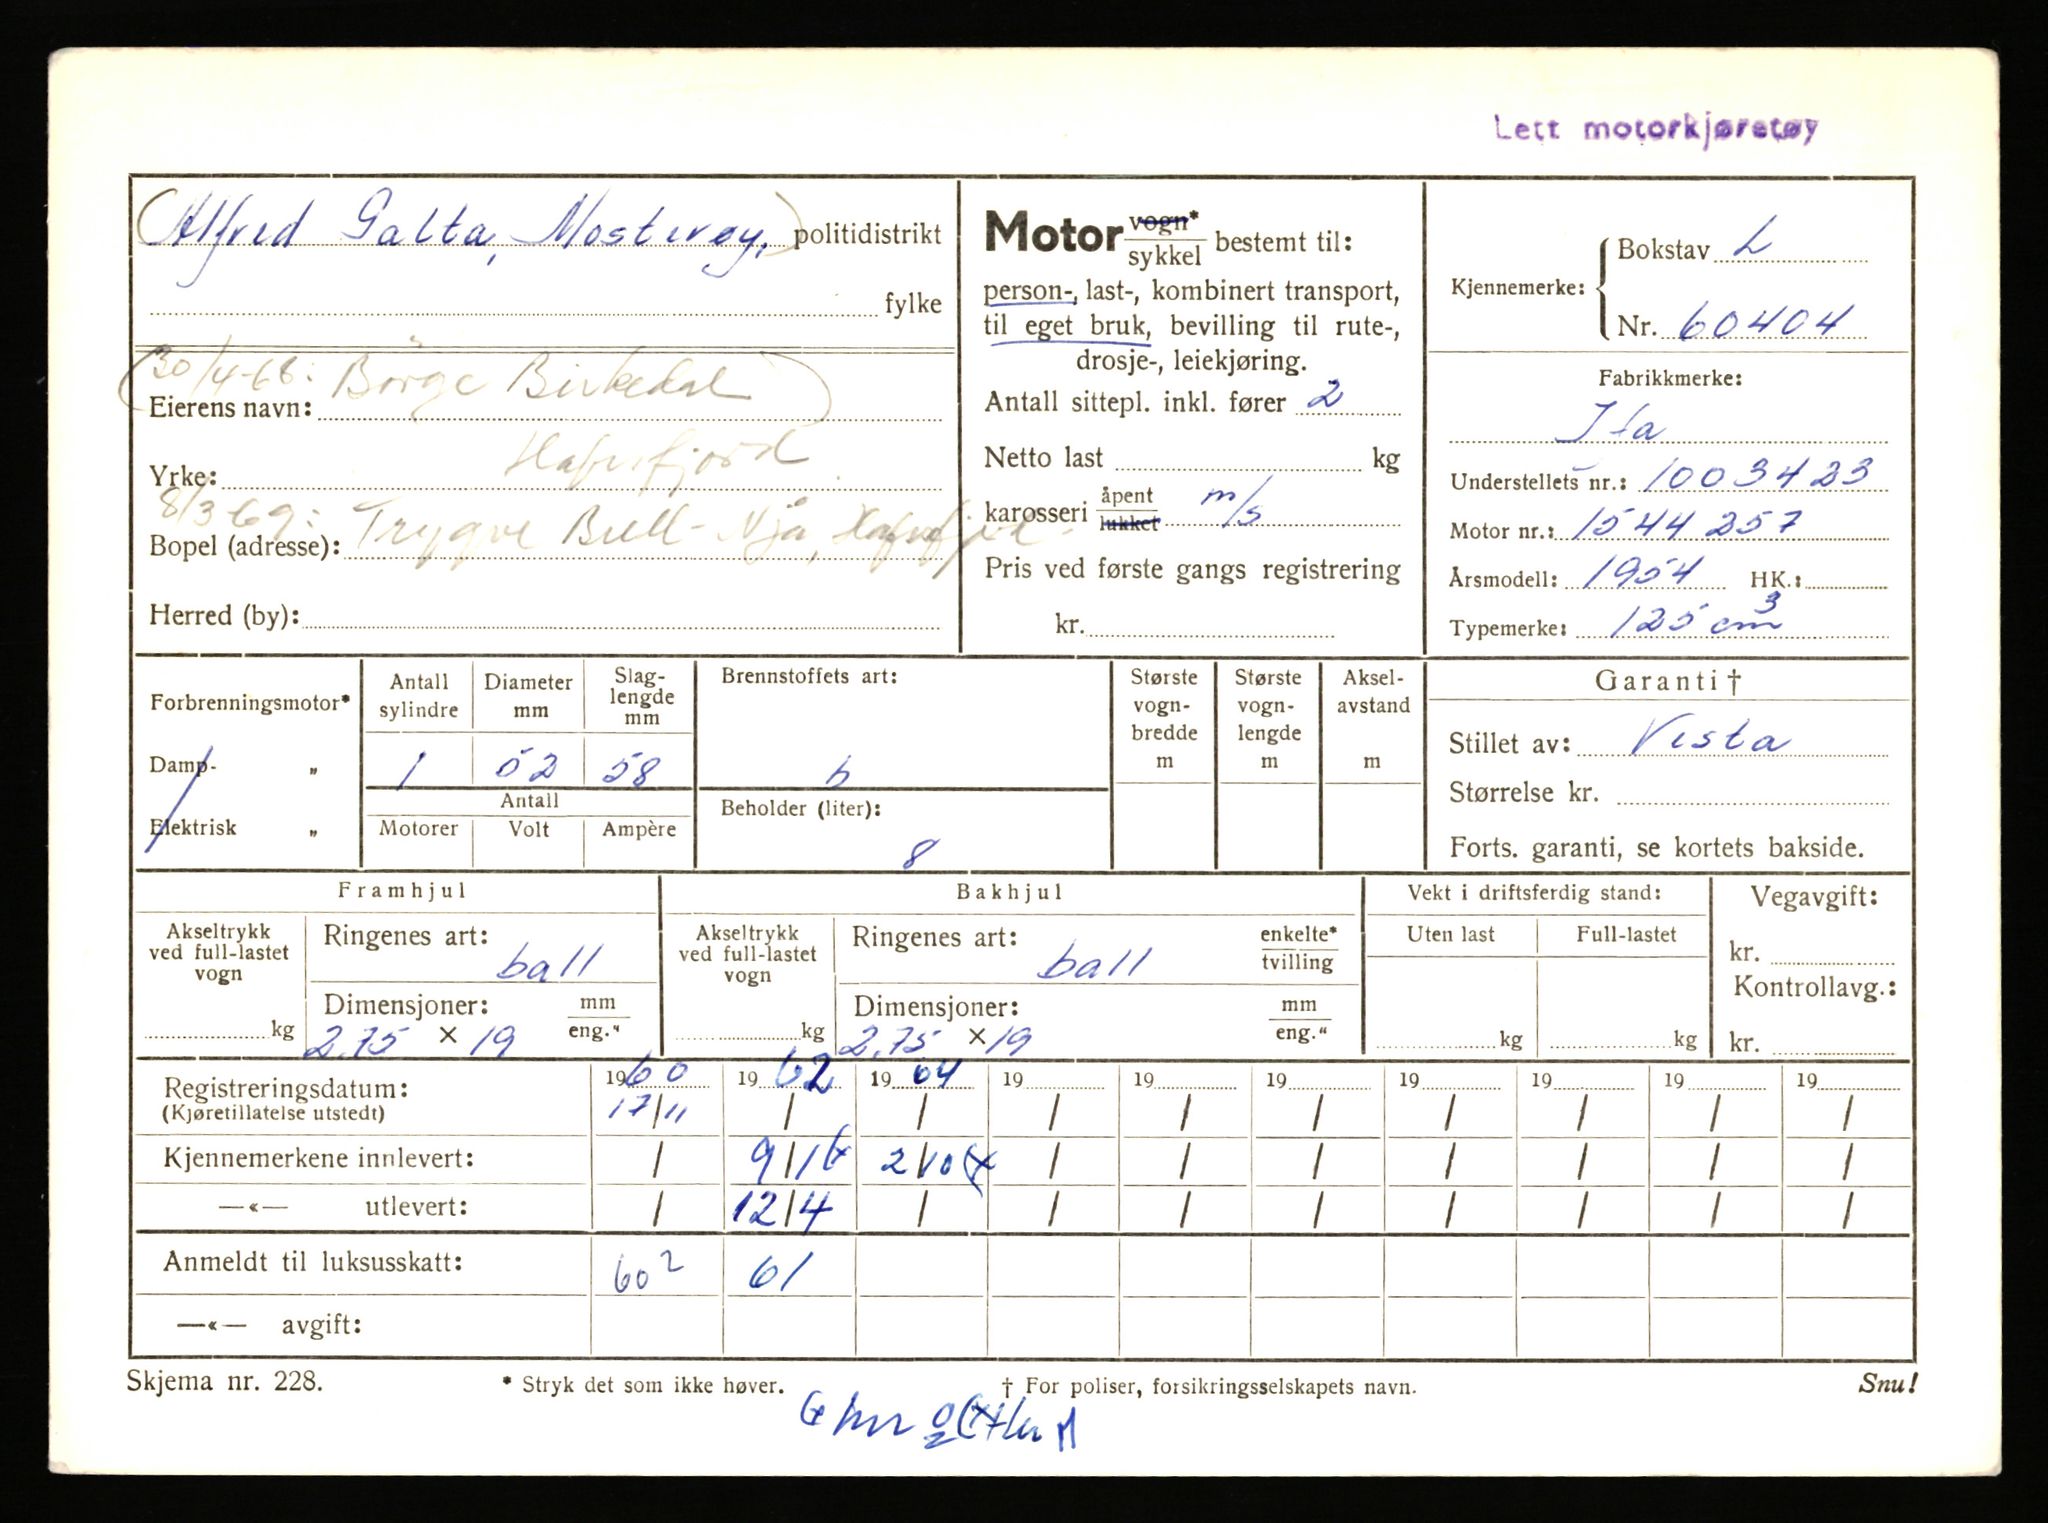 Lett motorkjøretøy
(Alfred Galta, Mosterøy.) politidistrikt
fylke
(30/4-68: Børge Birkedal)
Eierens navn:
Hafrsfjord
Yrke:
8/3-69: Trygve Bull-Njå, Hafrsfjord
Bopel (adresse):
Herred (by):
Motor vogn* sykkel bestemt til:
person-, last-, kombinert transport,
til eget bruk, bevilling til rute-,
drosje-, leiekjøring.
Antall sittepl. inkl. fører 2
Netto last kg
karosseri åpent lukket m/s
Pris ved første gangs registrering
kr.
Kjennemerke: Bokstav L
Nr. 60404
Fabrikkmerke:
Ifa
Understellets nr.: 1003423
Motor nr.: 1544257
Årsmodell: 1954 HK.:
Typemerke: 125 cm3
Forbrenningsmotor*
Damp- „
Elektrisk „
Antall sylindre
Diameter mm
Slag-lengde mm
1 52 58
Antall
Motorer Volt Ampère
Brennstoffets art:
b
Beholder (liter):
8
Største vogn-bredde m
Største vogn-lengde m
Aksel-avstand m
Garanti †
Stillet av: Vesta
Størrelse kr.
Forts. garanti, se kortets bakside.
Framhjul
Akseltrykk ved full-lastet vogn
kg
Ringenes art:
ball
Dimensjoner: mm eng."
2.75 × 19
Bakhjul
Akseltrykk ved full-lastet vogn
kg
Ringenes art: enkelte* tvilling
ball
Dimensjoner: mm eng."
2.75 × 19
Vekt i driftsferdig stand:
Uten last Full-lastet
kg kg
Vegavgift:
kr.
Kontrollavg.:
kr.
1960 1962 1964 19 19 19 19 19 19 19
Registreringsdatum: 17/11 / / / / / / / / /
(Kjøretillatelse utstedt)
Kjennemerkene innlevert: / 9/1 2/10 / / / / / / /
—«— utlevert: / 12/4 / / / / / / / /
Anmeldt til luksusskatt: 60² 61
—«— avgift:
Skjema nr. 228. * Stryk det som ikke høver. † For poliser, forsikringsselskapets navn. Snu!